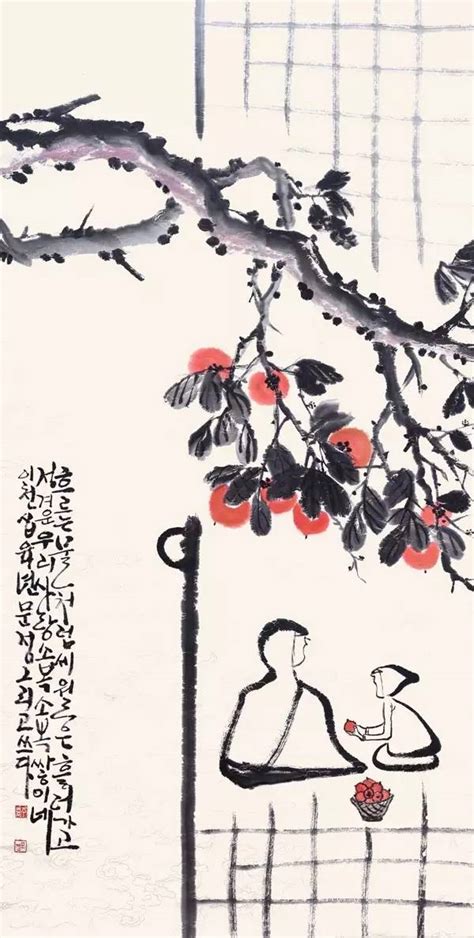 흐르는 물처럼 세월은 흘러가고
정겨운 우리사랑 소복소복 쌓이네
이천십육년 문정 그리고 쓰다